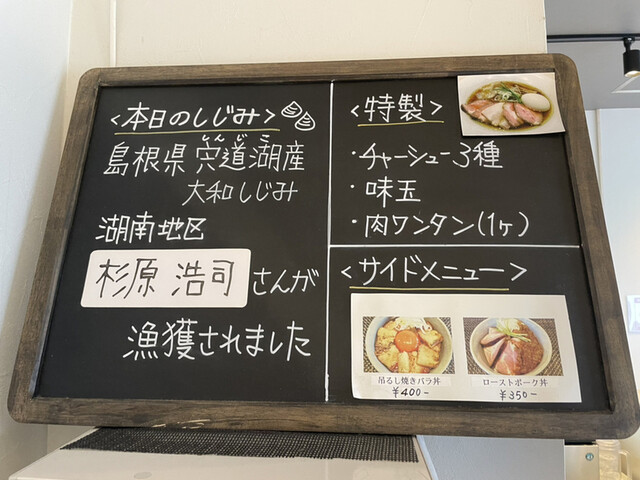 <本日のしじみ>
しんじこ
島根県 宍道湖産
大和しじみ
湖南地区
杉原 浩司 さんが
漁獲されました
<特製>
・チャーシュー3種
・味玉
・肉ワンタン(1ヶ)
<サイドメニュー>
吊るし焼きバラ丼
¥400-
ローストポーク丼
¥350-